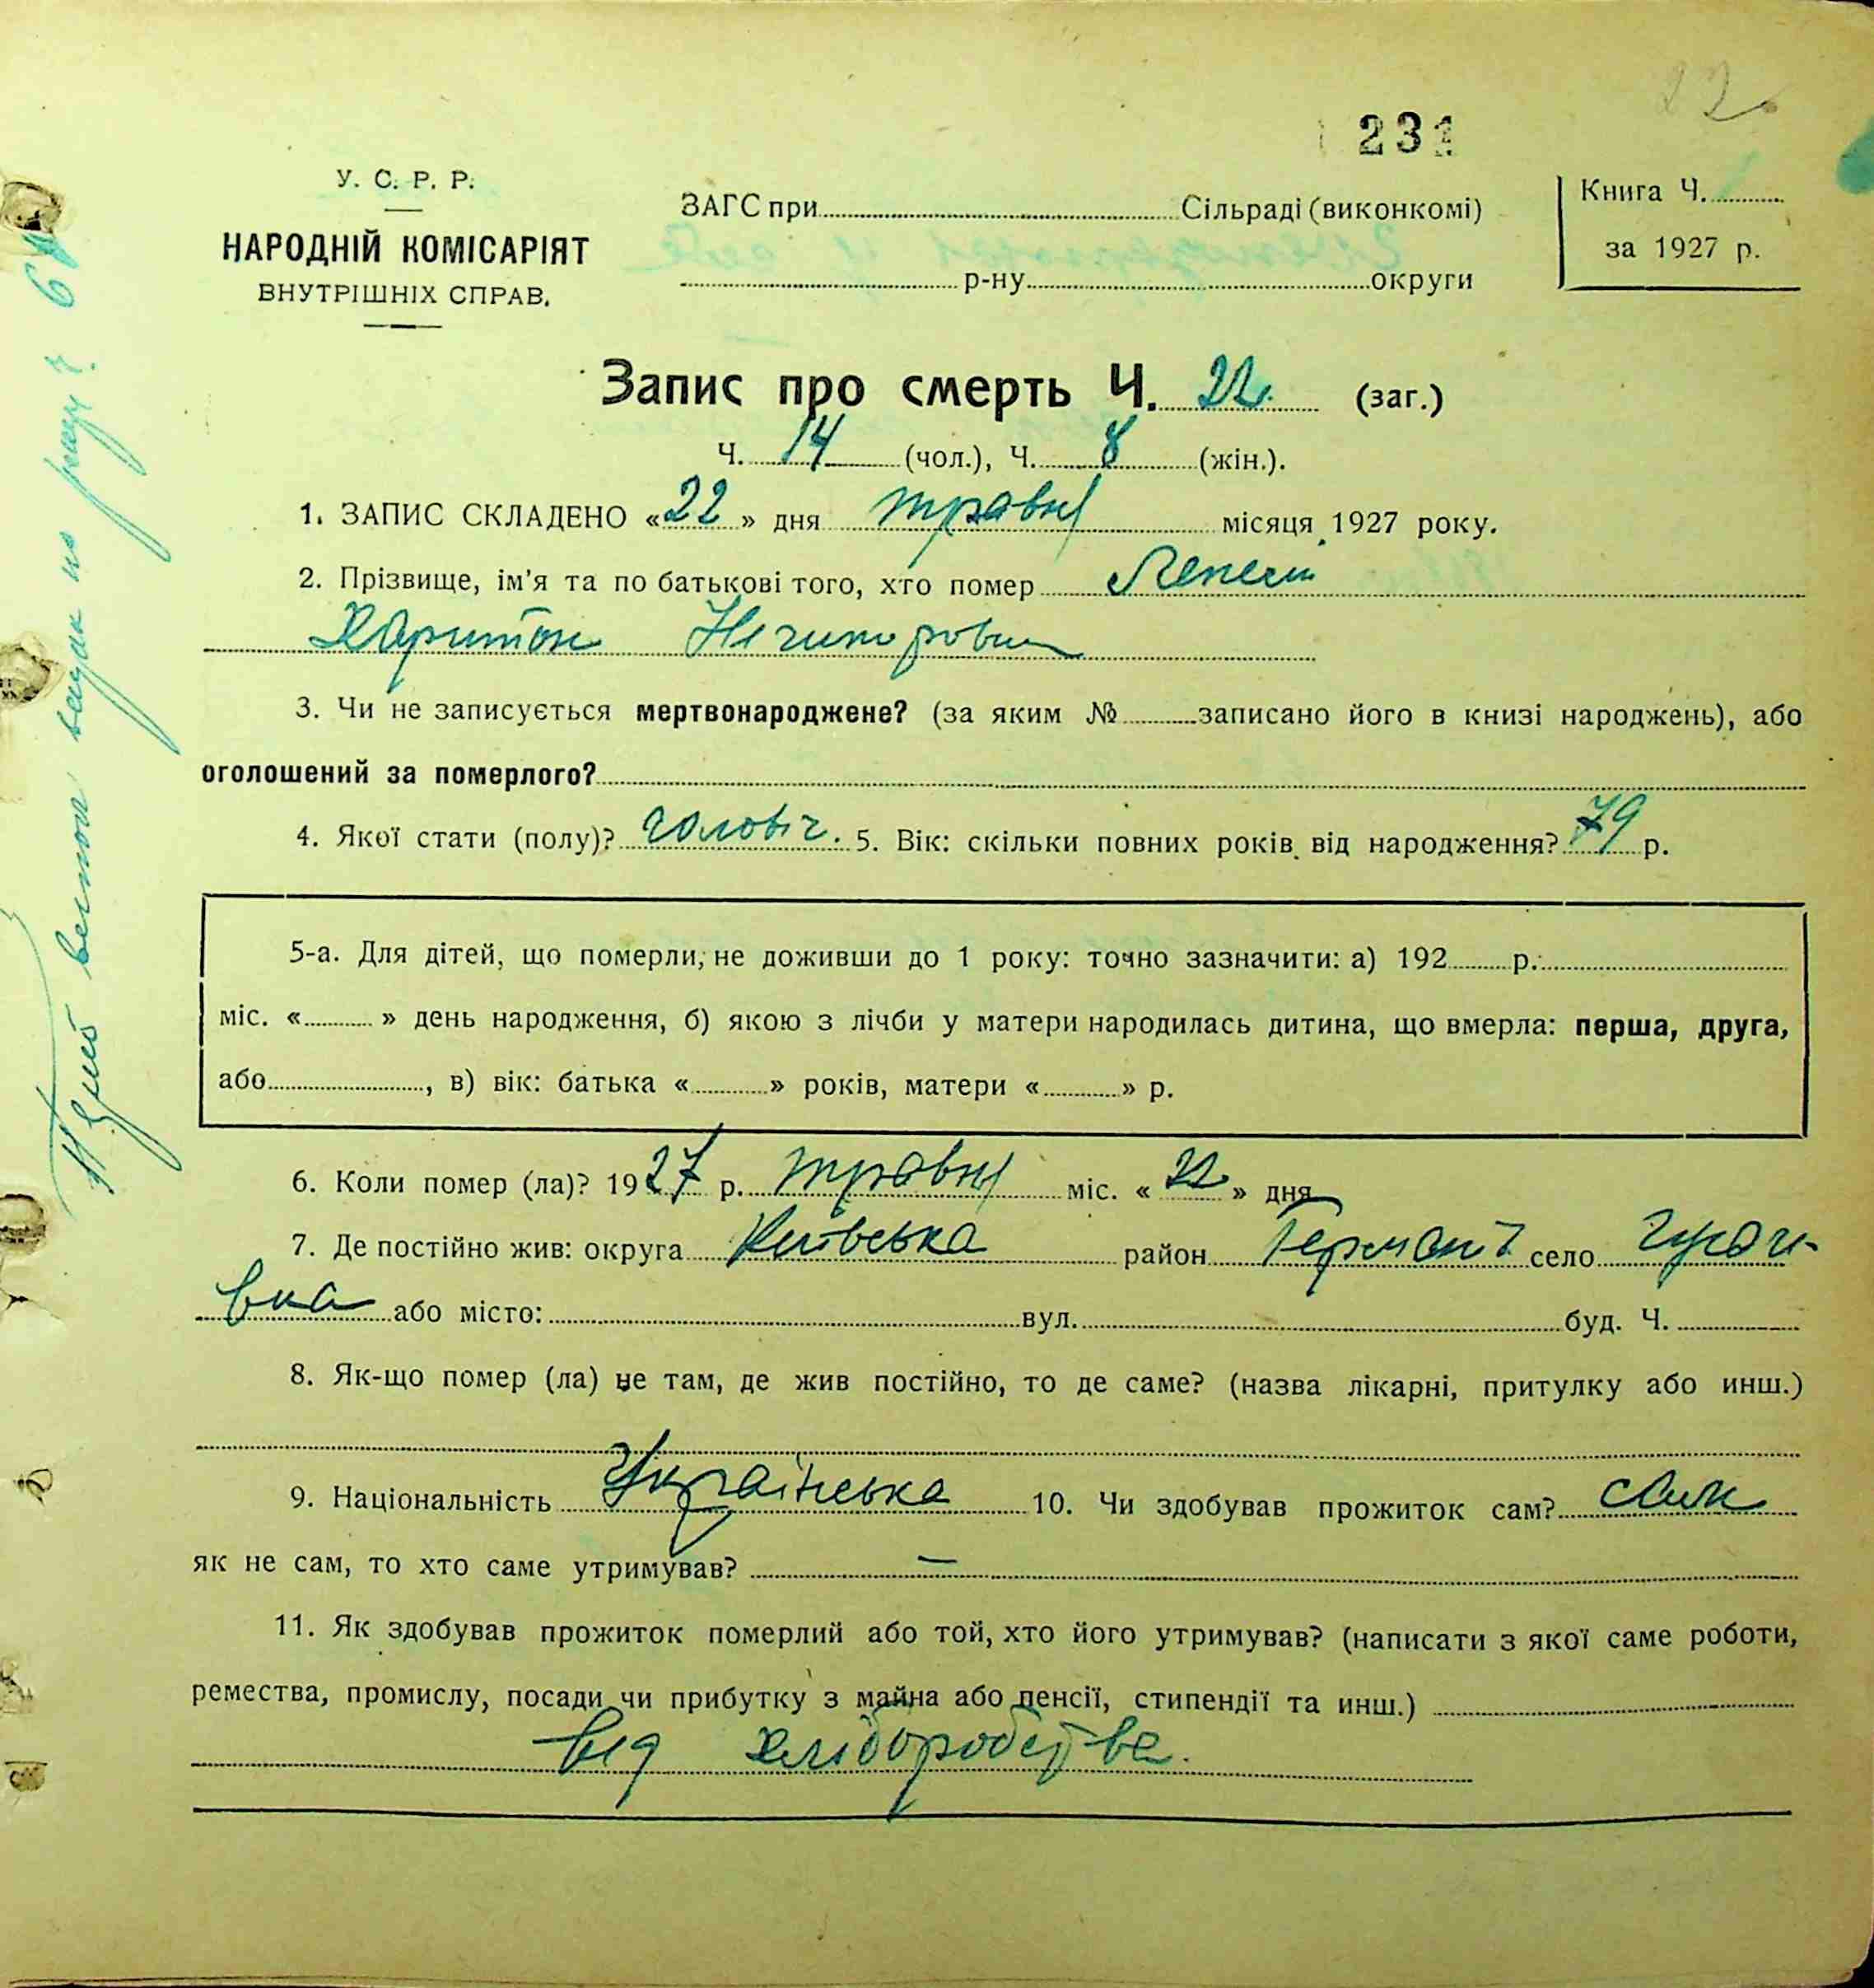 22
231
У. С. Р. Р.
НАРОДНІЙ КОМІСАРІЯТ
ВНУТРІШНІХ СПРАВ.
ЗАГС при Сільраді (виконкомі)
р-ну округи
Книга Ч.
за 1927 р.
Запис про смерть Ч. 22. (заг.)
Ч. 14 (чол.), Ч. 8 (жін.).
1. ЗАПИС СКЛАДЕНО «22» дня травня місяця 1927 року.
2. Прізвище, ім'я та по батькові того, хто помер
Харитон Ничипорович
3. Чи не записується мертвонароджене? (за яким № записано його в книзі народжень), або
оголошений за померлого?
4. Якої стати (полу)? чоловіч. 5. Вік: скільки повних років від народження? 79 р.
5-а. Для дітей, що померли, не доживши до 1 року: точно зазначити: а) 192 р.
міс. « » день народження, б) якою з лічби у матери народилась дитина, що вмерла: перша, друга,
або , в) вік: батька « » років, матери « » р.
6. Коли помер (ла)? 1927 р. травня міс. «22» дня
7. Де постійно жив: округа Київська район Герман село
вка або місто: вул. буд. Ч.
8. Як-що помер (ла) не там, де жив постійно, то де саме? (назва лікарні, притулку або инш.)
9. Національність Українська 10. Чи здобував прожиток сам? сам
як не сам, то хто саме утримував? —
11. Як здобував прожиток померлий або той, хто його утримував? (написати з якої саме роботи,
ремества, промислу, посади чи прибутку з майна або пенсії, стипендії та инш.)
від хліборобства.